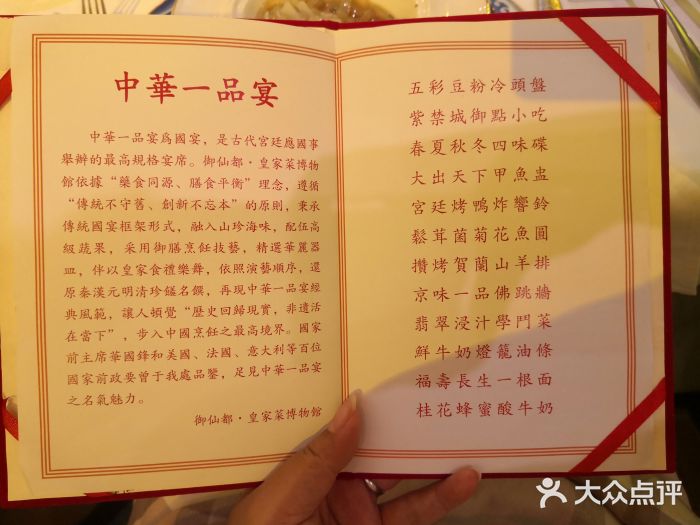 中華一品宴
中華一品宴爲國宴，是古代宮廷應國事
舉辦的最高規格宴席。御仙都·皇家菜博物
館依據“藥食同源、膳食平衡”理念，遵循
“傳統不守舊、創新不忘本”的原則，秉承
傳統國宴框架形式，融入山珍海味，配伍高
級蔬果，采用御膳烹飪技藝，精選華麗器
皿，伴以皇家食禮樂舞，依照演藝順序，還
原秦漢元明清珍饈名饌，再現中華一品宴經
典風範，讓人頓覺“歷史回歸現實，非遺活
在當下”，步入中國烹飪之最高境界。國家
前主席華國鋒和美國、法國、意大利等百位
國家前政要曾于我處品鑒，足見中華一品宴
之名氣魅力。
御仙都·皇家菜博物館
五彩豆粉冷頭盤
紫禁城御點小吃
春夏秋冬四味碟
大出天下甲魚盅
宮廷烤鴨炸響鈴
鬆茸菌菊花魚圓
攢烤賀蘭山羊排
京味一品佛跳牆
翡翠浸汁學鬥菜
鮮牛奶燈籠油條
福壽長生一根面
桂花蜂蜜酸牛奶
大众点评